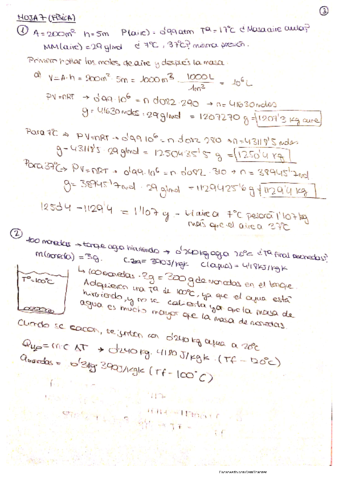 HOJA 7 (FÍSICA)
① A=200m² h=5m P(aire)=0'99 atm Tª=17ºC ¿Masa aire aula?
MM(aire)=29 g/mol ¿ 7ºC, 37ºC? misma presión.
Primero hallar los moles de aire y después la masa
a) V=A·h = 200m² 5m = 1000m³ 1000L/1m³ = 10⁶L
PV=nRT → 0'99 10⁶ = n 0'082 290 → n=41630 moles
g=41630 moles · 29 g/mol = 1207270 g = 1207'3 kg aire
Para 7ºC → PV=nRT → 0'99 10⁶ = n 0'082 280 → n=43118'5 moles
g=43118'5 29 g/mol = 1250435'5 g = 1250'4 kg
Para 37ºC → PV=nRT → 0'99 10⁶ = n 0'082 · 310 → n = 38945'7 mol
g = 38945'7 mol · 29 g/mol = 1129425'6 g = 1129'4 kg
más que el aire a 37ºC
② 100 monedas → 0'240 kg agua 20ºC ¿Tª final monedas?
m(moneda)=3g. C = 390 J/kgK C(agua)=4180 J/kgK
Tª=100ºC
↳ 100 monedas · 3g = 300 g de monedas en el
Adquieren una Tª de 100ºC, ya que el agua está
hirviendo, y no se enfría, ya que la masa de
agua es mucho mayor que la masa de monedas
Cuando se sacan, se juntan con 0'240 kg agua a 20ºC
= m C ΔT → 0'240 kg · 4180 J/kgK · (Tf - 20ºC)
Q monedas = 0'3 kg 390 J/kgK · (Tf - 100ºC)